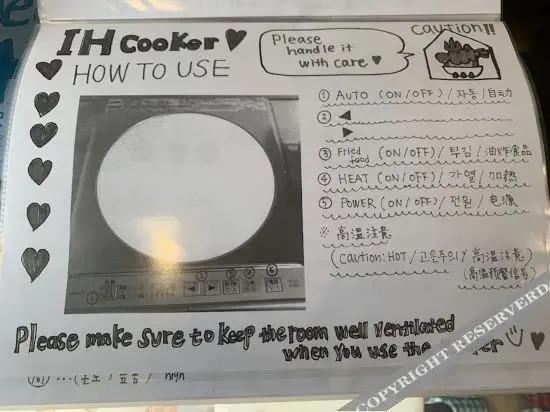 IH Cooker♥
HOW TO USE
Please
handle it
with care ♥
caution!!
① AUTO (ON/OFF)/자동/自动
② ◀
▶
③ Fried food (ON/OFF)/튀김/油炸食品
④ HEAT (ON/OFF)/가열/加热
⑤ POWER (ON/OFF)/전원/电源
※ 高温注意
(caution: HOT/고온주의/高温注意)
(高温预警信号)
① ② ③ ④
Please make sure to keep the room well ventilated
when you use the
COPYRIGHT RESERVED